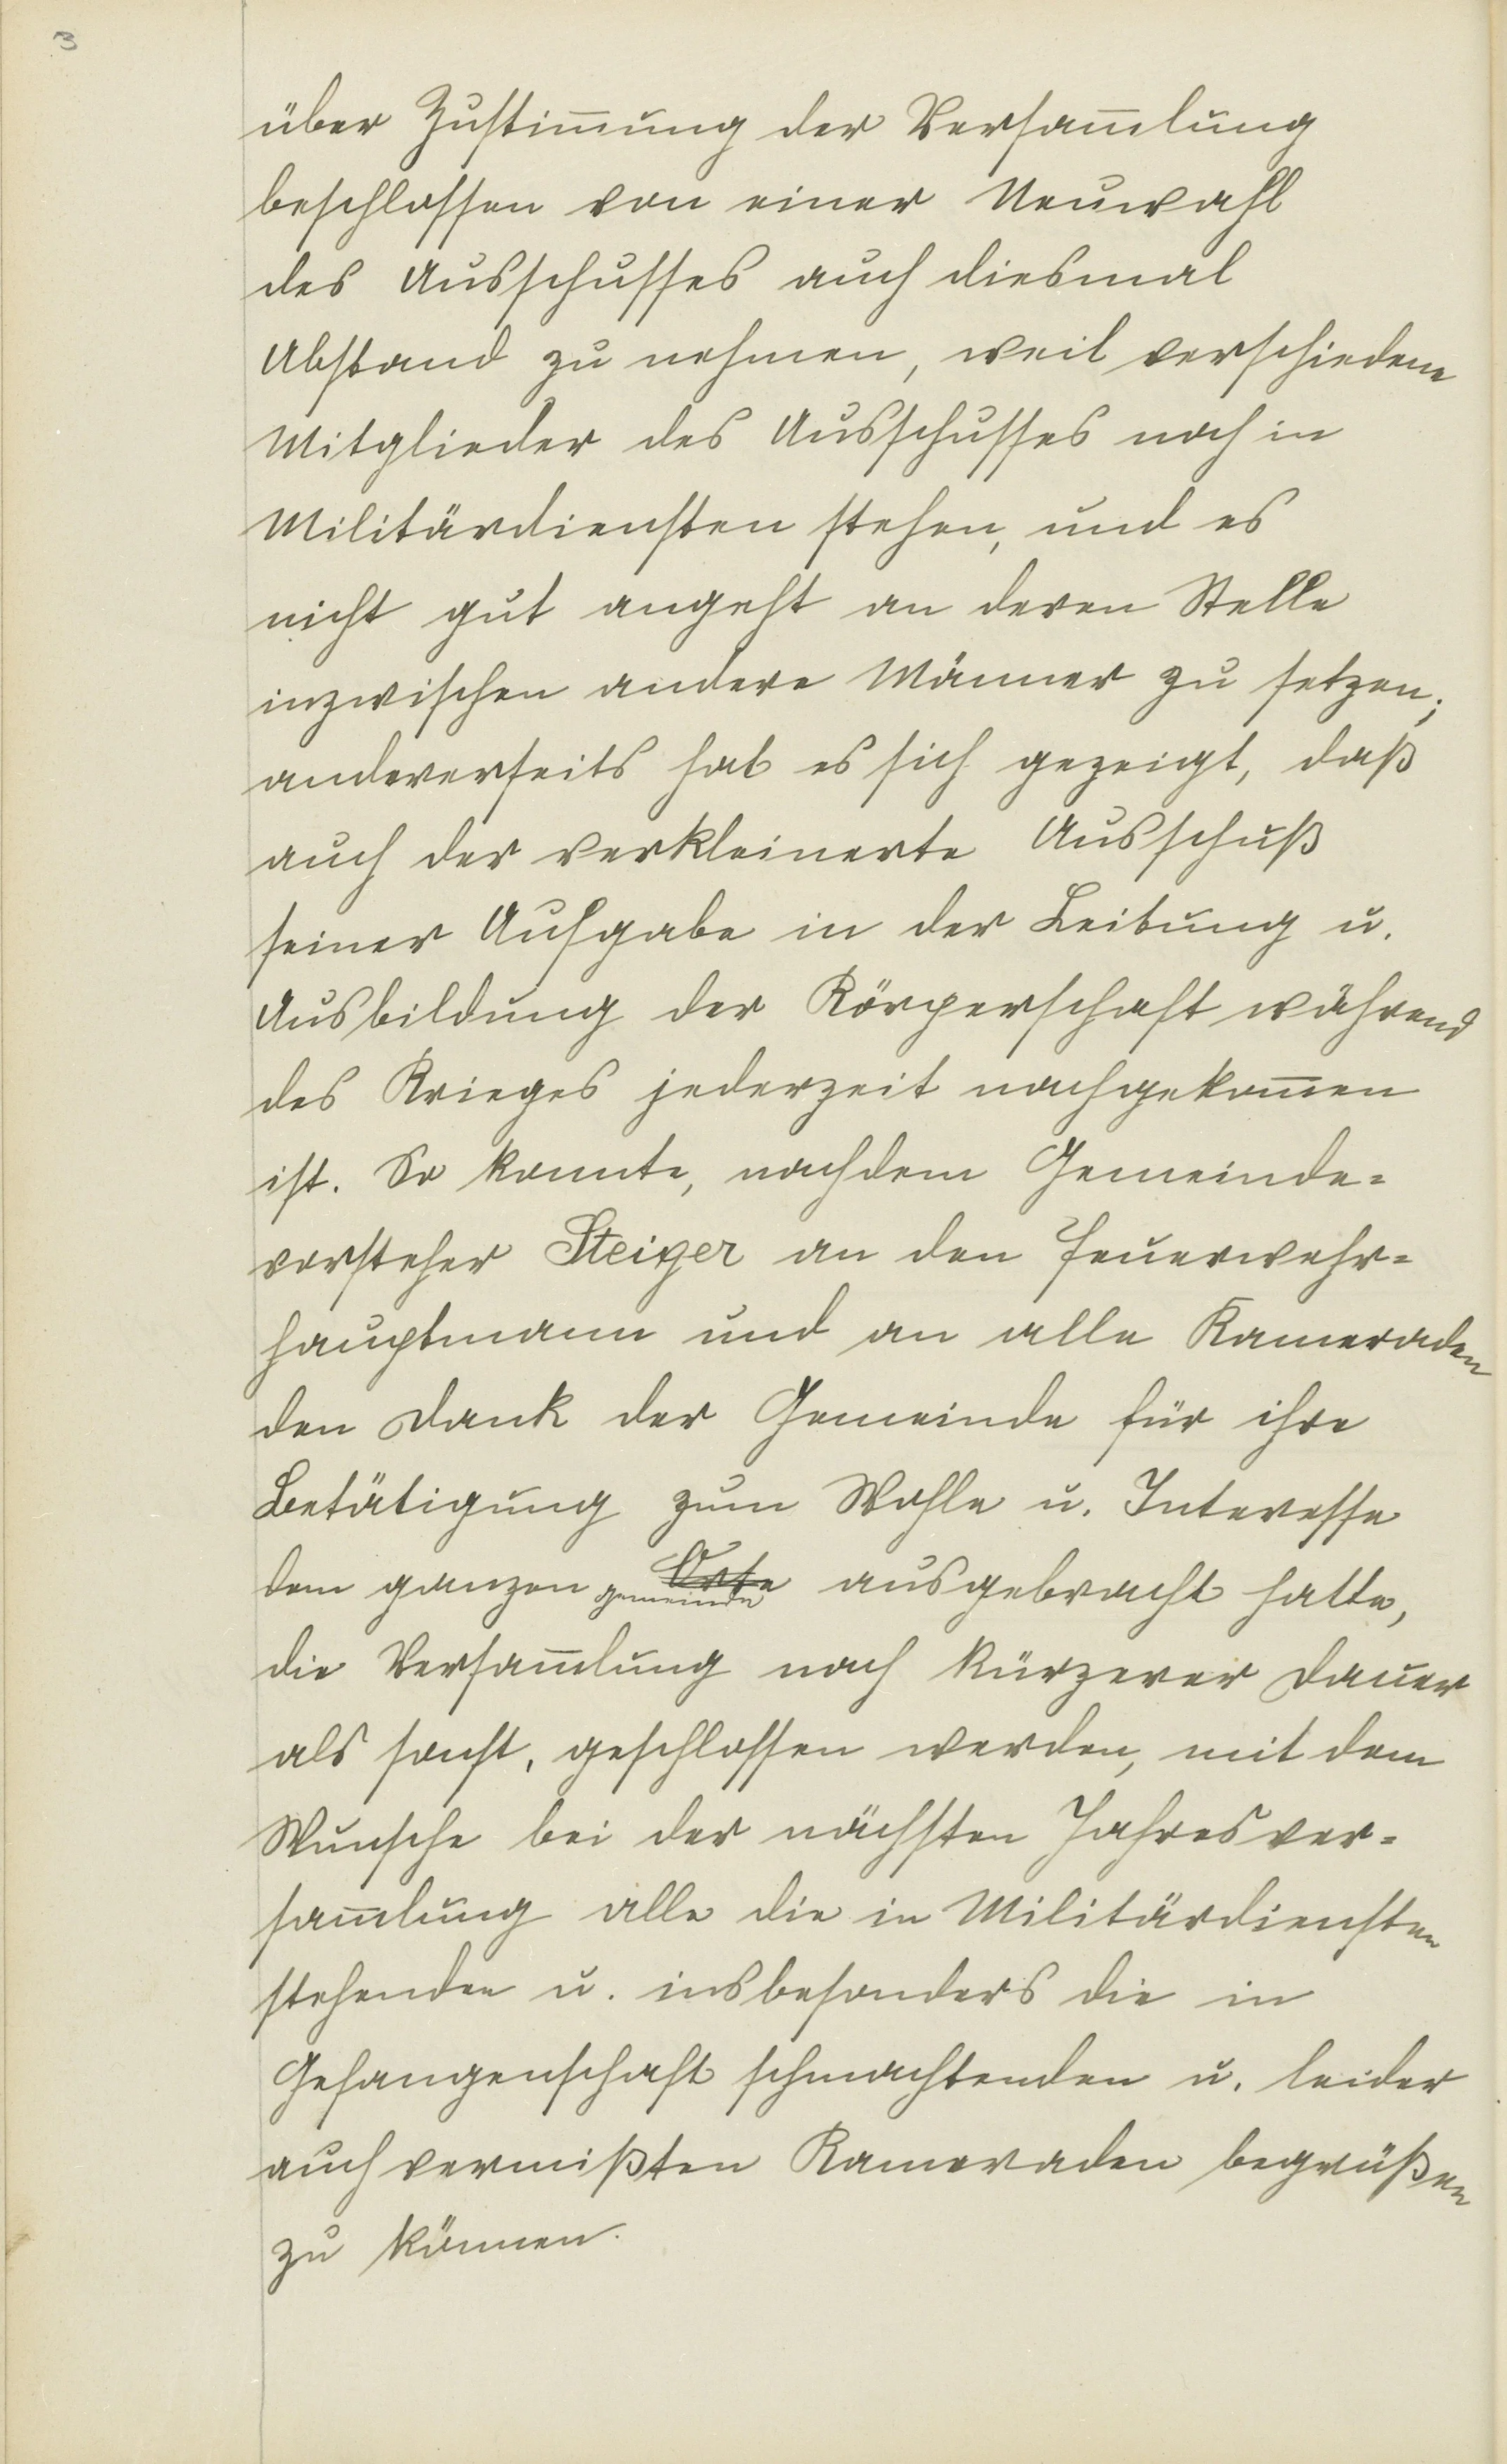 3
über Zustim̅ung der Versam̅lung
beschlossen von einer Neuwahl
des Ausschusses auch diesmal
Abstand zu nehmen, weil verschiedene
Mitglieder des Ausschusses noch in
Militärdiensten stehen, und es
nicht gut angeht an deren Stelle
inzwischen andere Männer zu setzen;
andererseits hat es sich gezeigt, daß
auch der verkleinerte Ausschuß
seiner Aufgabe in der Leitung u.
Ausbildung der Körperschaft während
des Krieges jederzeit nachgekom̅en
ist. So konnte, nachdem Gemeinde=
vorsteher Steiger an den Feuerwehr=
hauptmann und an alle Kameraden
den Dank der Gemeinde für ihre
Betätigung zum Wohle u. Interesse
dem ganzen Orte ausgebracht hatte,
gemeinde
die Versam̅lung nach kürzerer Dauer
als sonst, geschlossen werden, mit dem
Wunsche bei der nächsten Jahresver=
sam̅lung alle die in Militärdiensten
stehenden u. insbesonders die in
Gefangenschaft schmachtenden u. leider
auch vermißten Kameraden begrüßen
zu können.